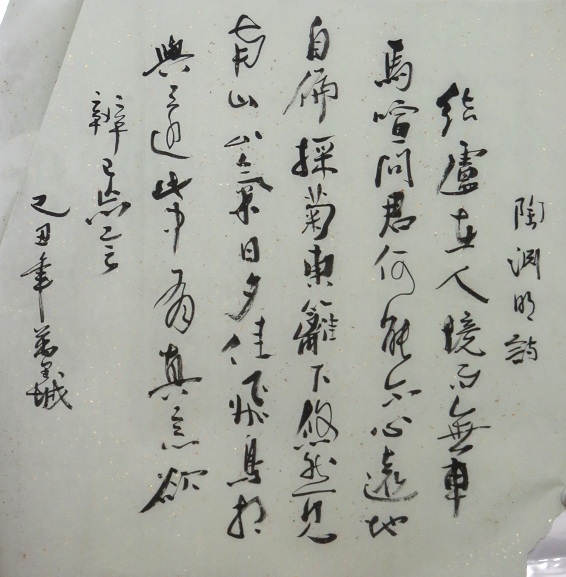 陶渊明詩
结盧在人境而無車
馬喧問君何能尔心遠地
自偏採菊東籬下悠然見
南山山氣日夕佳飛鳥相
與還此中有真意欲
辨已忘言
己丑年城